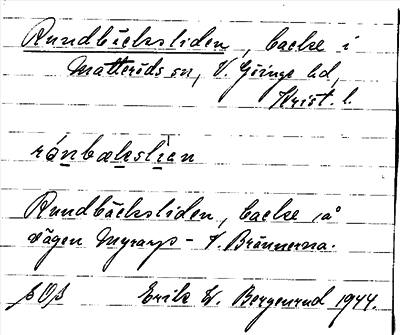 Rundbäcksliden, backe i
Matteröds sn, V. Göinge hd,
Krist. l.
rónbækslian
Rundbäcksliden, backe på
vägen Myrarp - V. Brännorna.
Erik W. Bergenrud 1944.